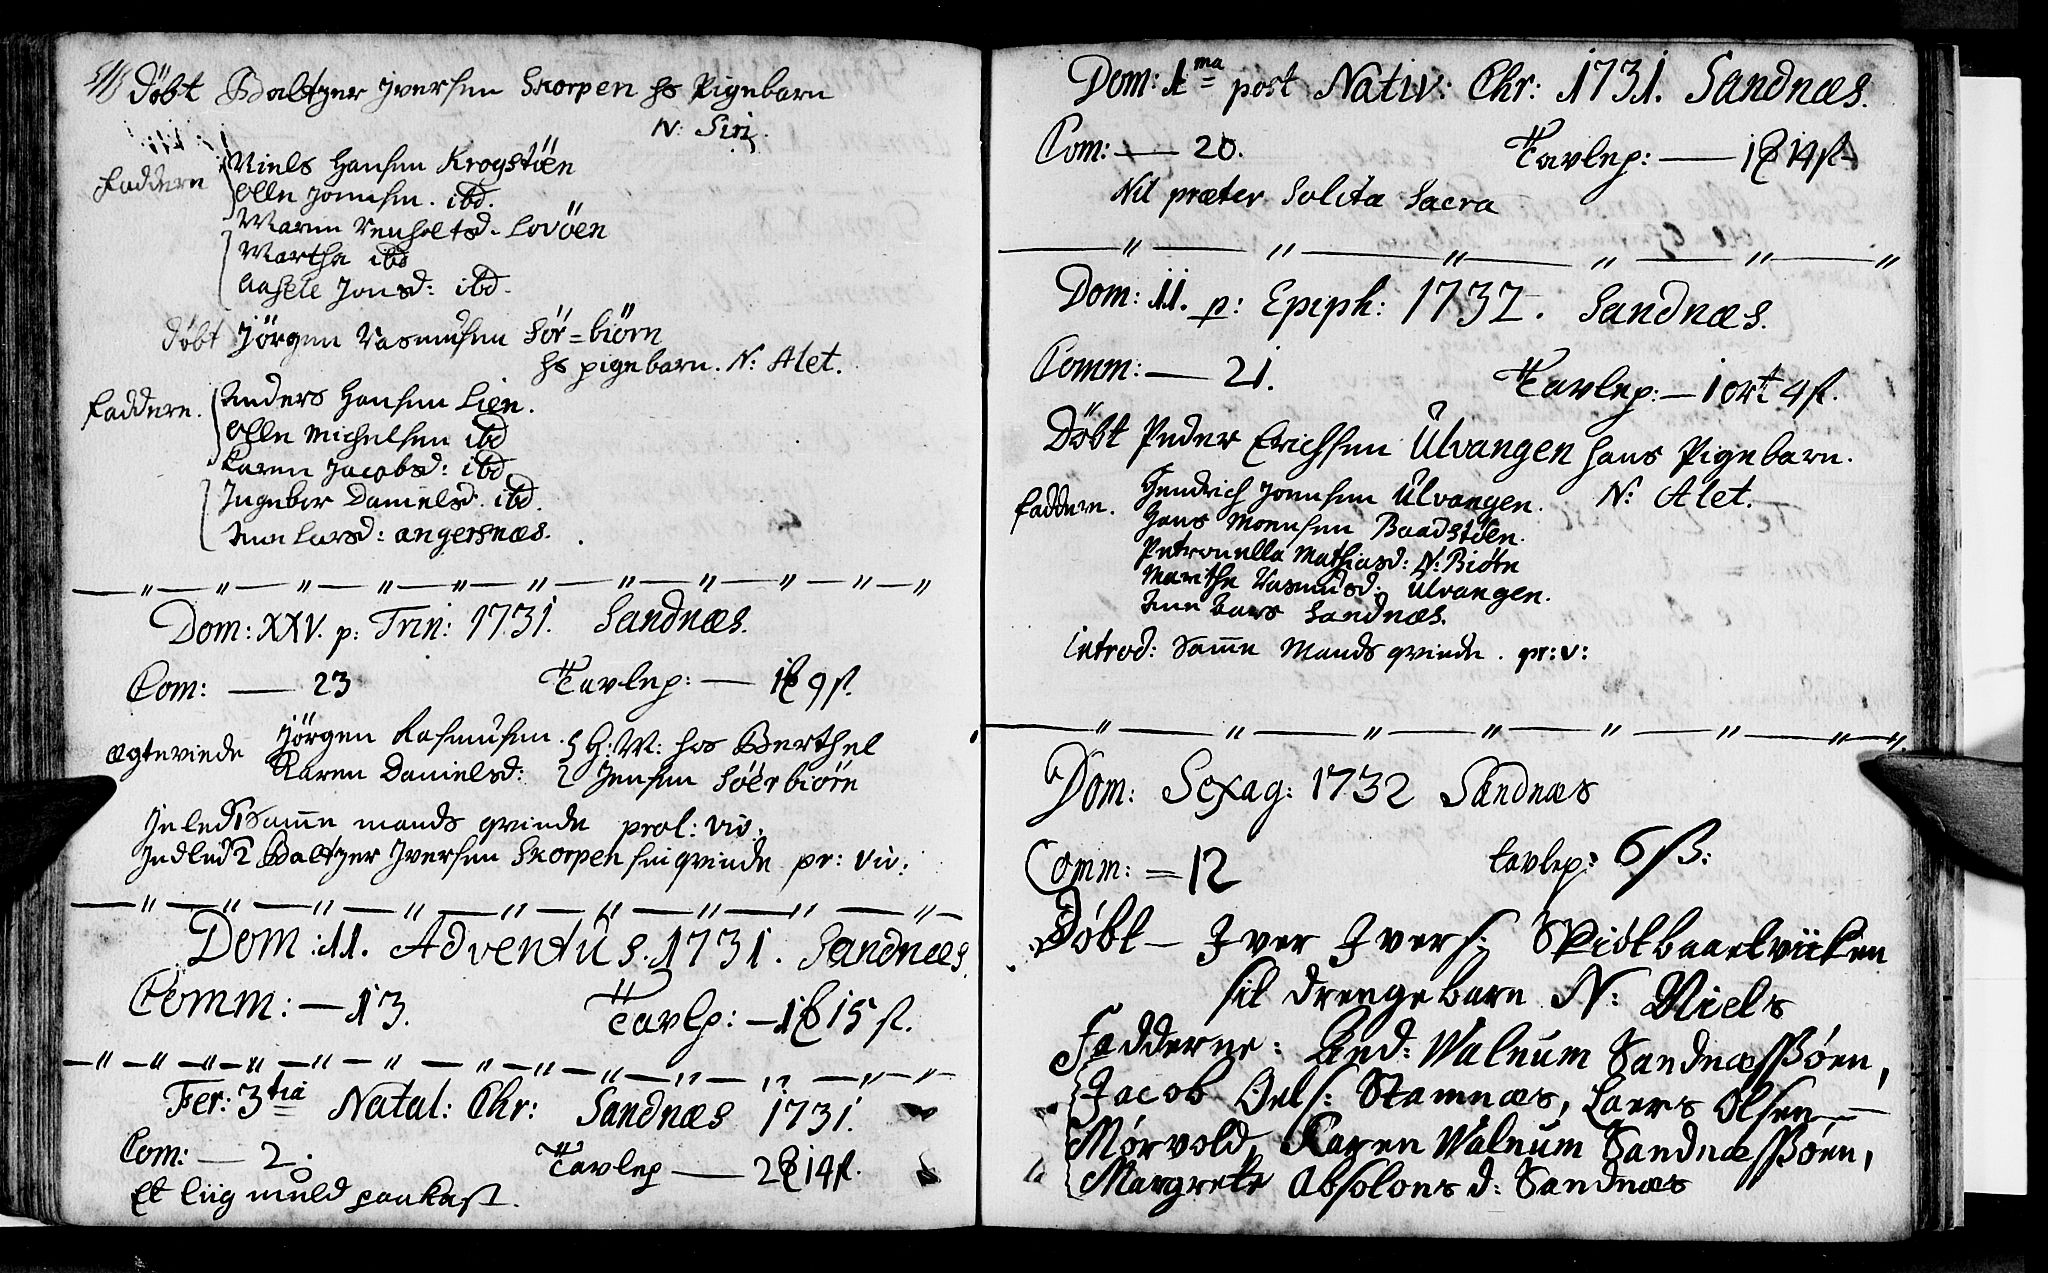 Döbt Baltzer Jversen Skorpen hs Pigebarn
N: Siri
Niels Hansen Krogstöen
Faddere
Olle Jonnsen. ibd.
Maren Reuholtsd. Lovöen
Marthe ibd
Aasele Jonsd: ibd.
Döbt Jörgen Rasmusen Sör=biörn
hs pigebarn. N: Alet.
Faddere. Anders Hansen Lien.
Olle Michelsen ibd
Karen Jacobsd: ibd
Ingebor Danielsd. ibd.
Ane Larsd: angersnæs.
Dom: XXV. p: Trin: 1731. Sandnæs.
Com: — 23 Tavlep: — 1 9 s.
Jörgen Rasmusen. H: W: hos Berthel
Ægteviede
Karen Danielsd: Jensen Söerbiörn
Jnled 1 Samme mands qvinde prol: viv:
Jndled 2 Baltzer Jversen Skorpen sin qvinde pr: viv:
Dom: 11. Adventus. 1731. Sandnæs.
Comm: — 13. Tavlp: — 1 15 s.
Fer: 3tia Natal: Chr: Sandnæs 1731.
Com: — 2. Tavlep — 2 14 s.
Et liig muld paakast.
Dom: 1ma post Nativ: Chr: 1731. Sandnæs.
Com: — 20. Tavlep: — 1 14 s
Nil præter Solita Sacra
Dom: 11. p: Epiph: 1732. Sandnæs.
Comm: — 21. Tavlep: — 1 ort 4 s.
Döbt Peder Erichsen Ulvangen hans Pigebarn.
N: Alet.
Faddere. Hendrich Jonnsen Ulvangen.
Hans Monsen Baadstöen.
Petronella Mathiasd: N: Biörn
Marithe Rasmusd: Ulvangen.
Ane Lars Sandnæs.
Introd: Samme Mands qvinde. pr: v:
Dom: Sexag: 1732 Sandnæs
Comm: = 12 tavlep: 6 sß:
Döbt — Iver Ivers: Skiötbaatviiken
sit drengebarn N: Niels
Fadderne: Walnum Sandnæssöen,
Jacob Oels: Stamnæs, Laers Olsen —
Mórvold, Karen Walnum Sandnæssöen,
Margrete Absolons d: Sandnæs